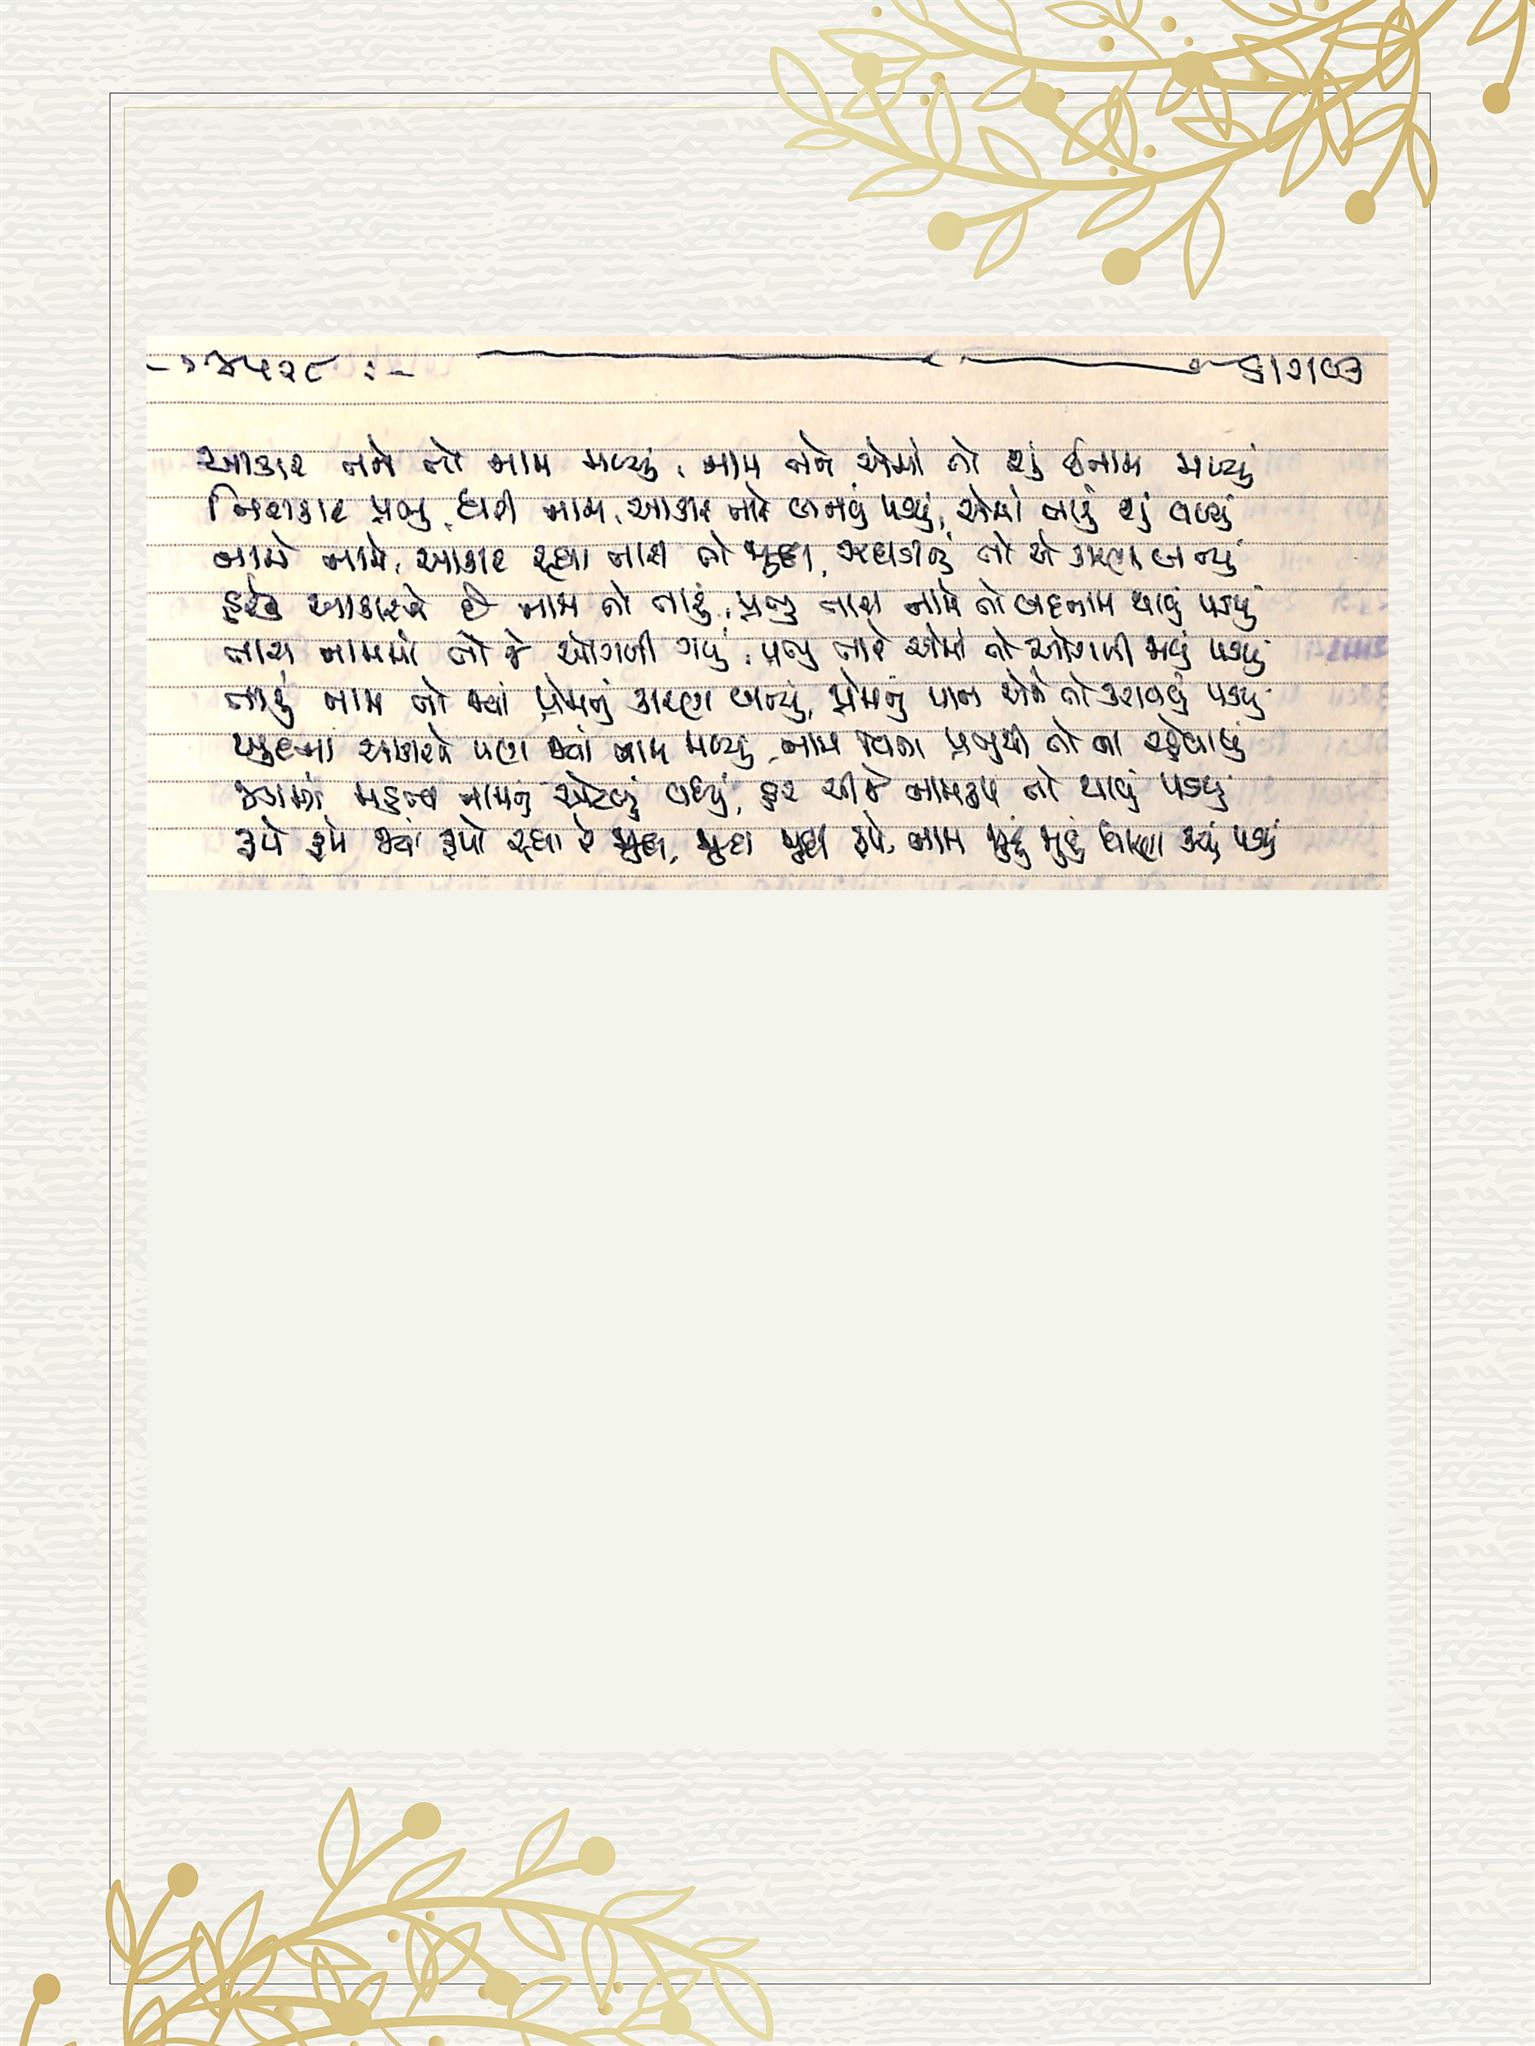 આકાર તને તો નામ મળ્યું, નામ તને એમાં તો શું ઈનામ મળ્યું
નિરાકાર પ્રભુ, ધરી નામ, આકાર તારે બનવું પડયું, એમાં તારું શું વળ્યું
નામે નામે, આકાર રહ્યા તારા તો જુદા, ઝઘડાનું તો એ કારણ બન્યું
હરેક આકારને છે નામ તો તારું, પ્રભુ તારા નામે તો બદનામ થાવું પડયું
તારા નામમાં તો જે ઓગળી ગયું, પ્રભુ તારે એમાં તો ઓગળી જવું પડયું
તારું નામ તો જ્યાં પ્રેમનું કારણ બન્યું, પ્રેમનું પાન એને તો કરાવવું પડયું
ખુદના આકારને પણ જ્યાં નામ મળ્યું, નામ વિના પ્રભુથી તો ના રહેવાયું
જગમાં મહત્ત્વ નામનું એટલું વધ્યું, હર ચીજે નામરૂપ તો થાવું પડયું
રૂપે રૂપે જ્યાં રૂપો રહ્યા રે જુદા, જુદા જુદા રૂપે, નામ જુદું જુદું ધારણ કરવું પડયું